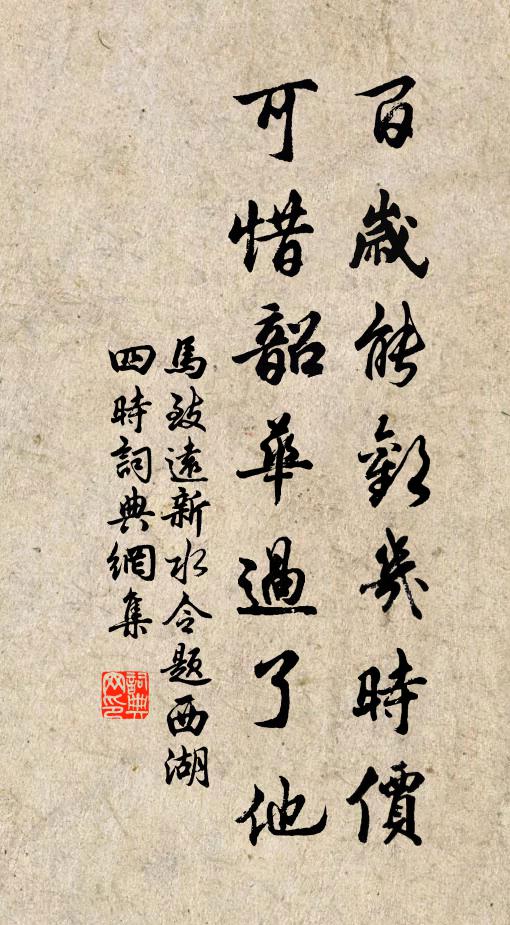 百歲能歡幾時價
可惜韶華過了他
馬致遠新水令題西湖
四時詞典網集
詞典
网印